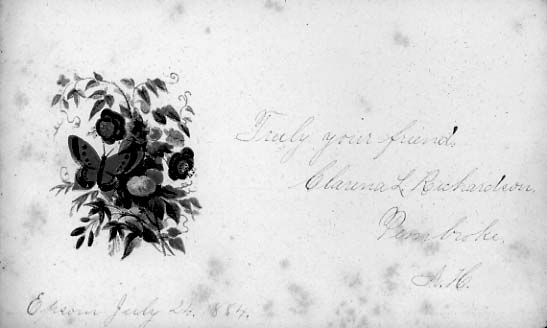 Truly your friend.
Clarena L Richardson,
Pembroke,
N.H.
Epsom July 26. 1884.